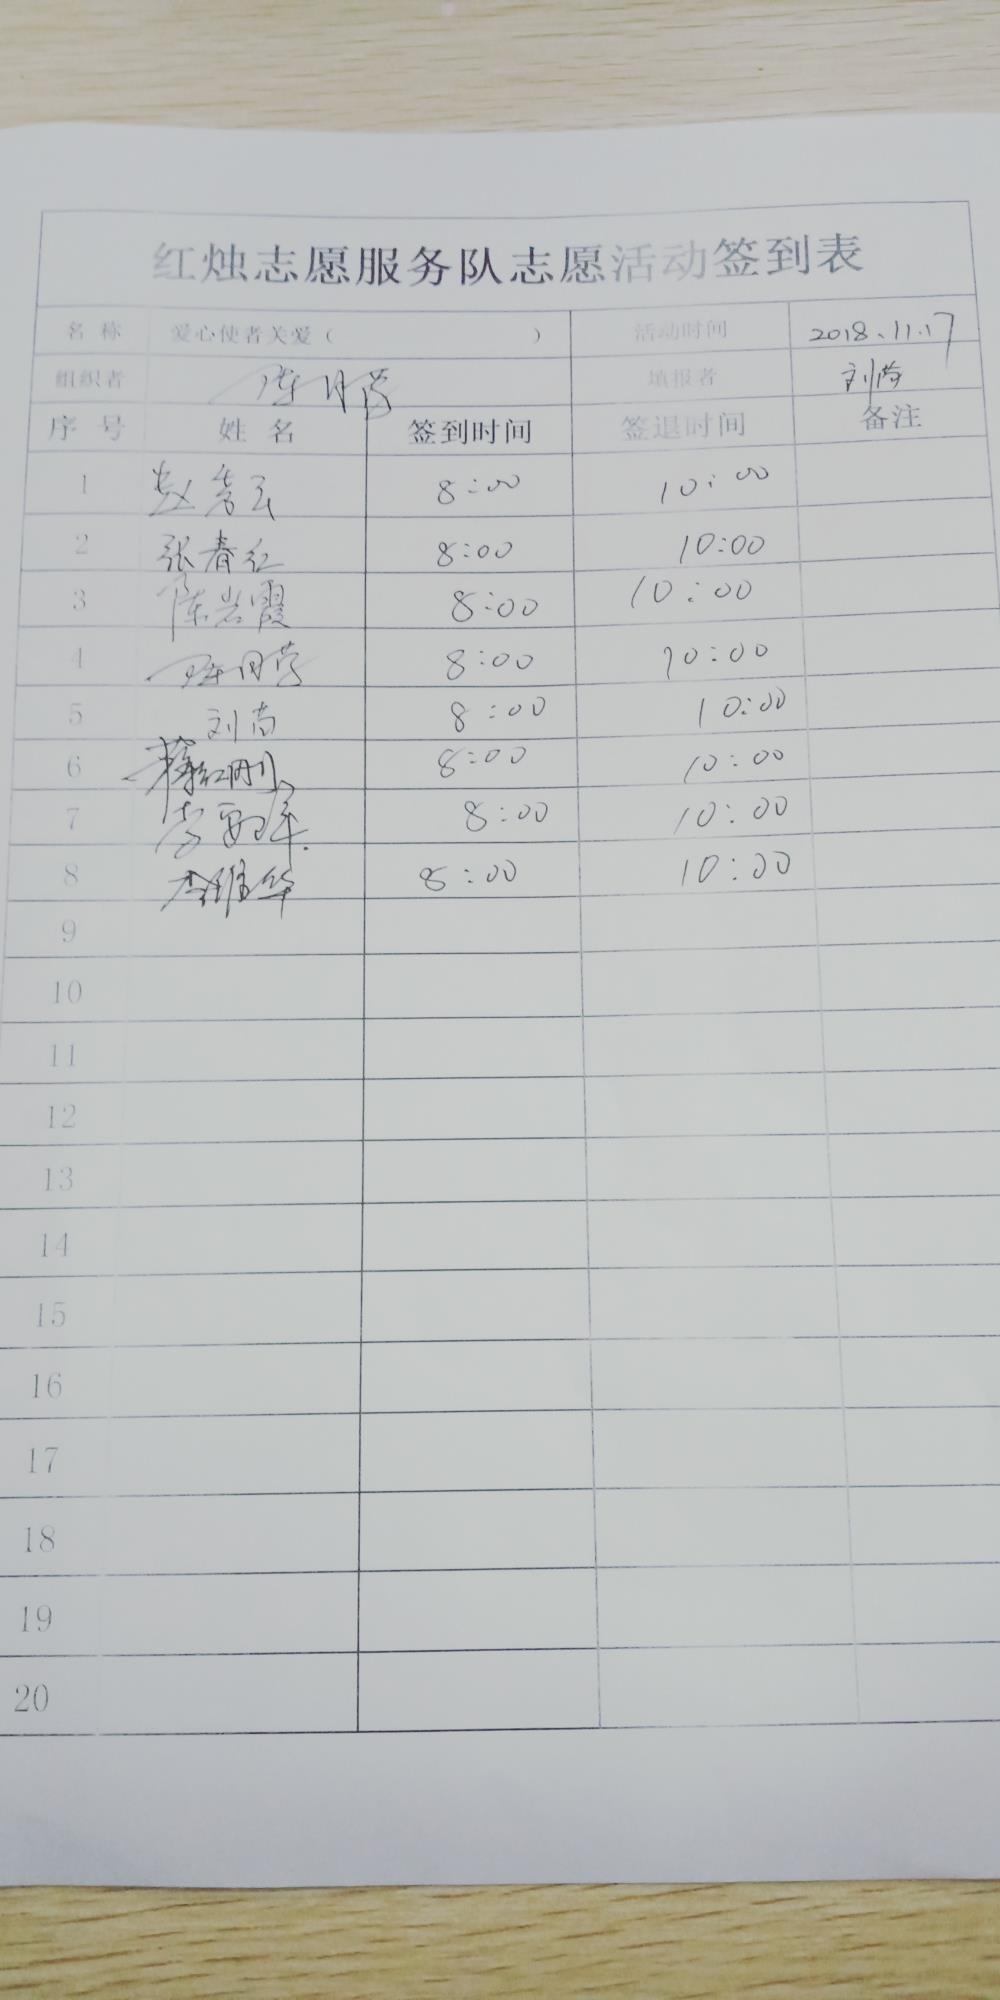 红烛志愿服务队志愿活动签到表
名 称 爱心使者关爱（ ） 活动时间 2018.11.17
组织者 陈月芳 填报者 刘尚
序 号 姓 名 签到时间 签退时间 备注
1 赵 云 8:00 10:00
2 张春红 8:00 10:00
3 陈岩霞 8:00 10:00
4 8:00 10:00
5 刘尚 8:00 10:00
6 8:00 10:00
7 8:00 10:00
8 李维华 8:00 10:00
9
10
11
12
13
14
15
16
17
18
19
20